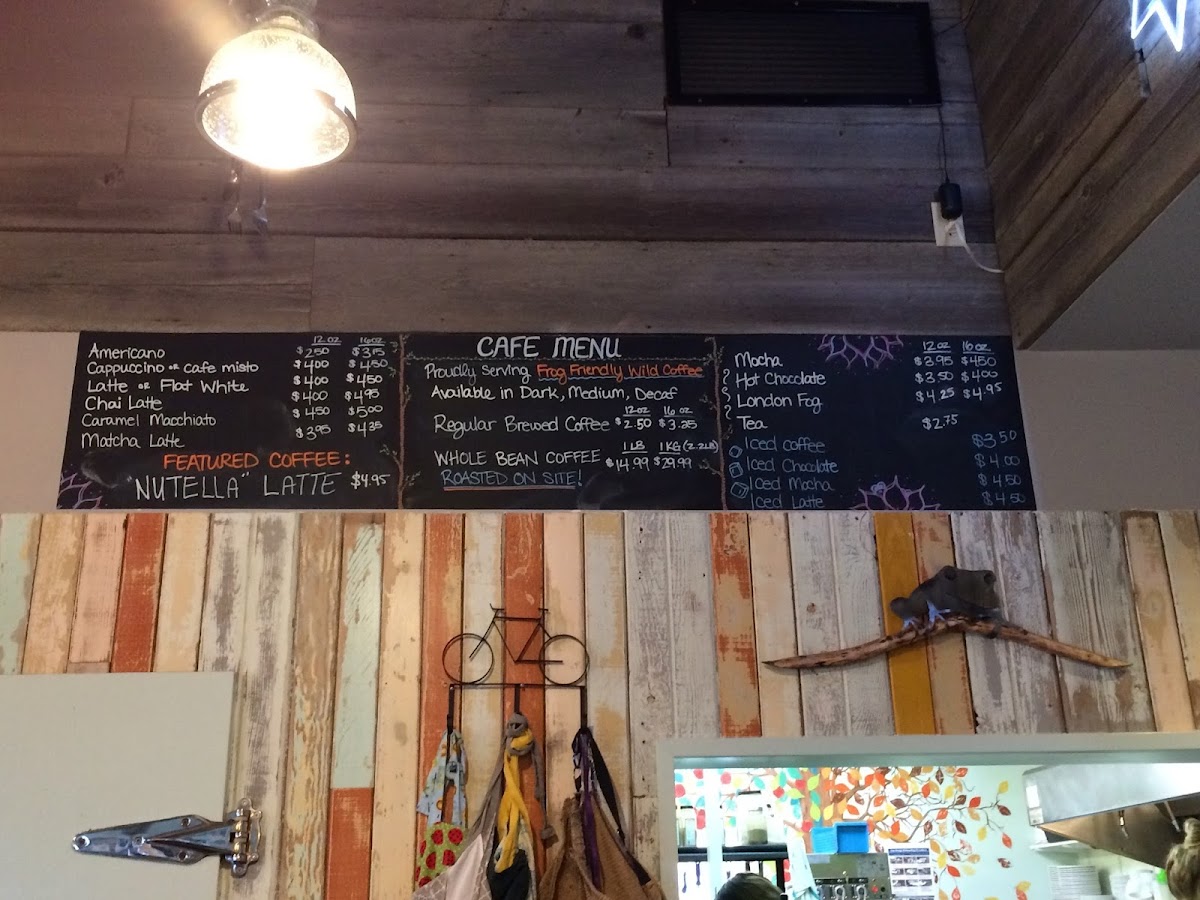 12 oz 16 oz
Americano $2.50 $3.15
Cappuccino OR cafe misto $4.00 $4.50
Latte OR Flat White $4.00 $4.50
Chai Latte $4.00 $4.95
Caramel Macchiato $4.50 $5.00
Matcha Latte $3.95 $4.35
FEATURED COFFEE:
"NUTELLA" LATTE $4.95
CAFE MENU
Proudly Serving Frog Friendly Wild Coffee
Available in Dark, Medium, Decaf
12 oz 16 oz
Regular Brewed Coffee $2.50 $3.25
1 LB 1 KG (2.2LB)
WHOLE BEAN COFFEE $14.99 $29.99
ROASTED ON SITE!
12 oz 16 oz
Mocha $3.95 $4.50
Hot Chocolate $3.50 $4.00
London Fog $4.25 $4.95
Tea $2.75
Iced Coffee $3.50
Iced Chocolate $4.00
Iced Mocha $4.50
Iced Latte $4.50